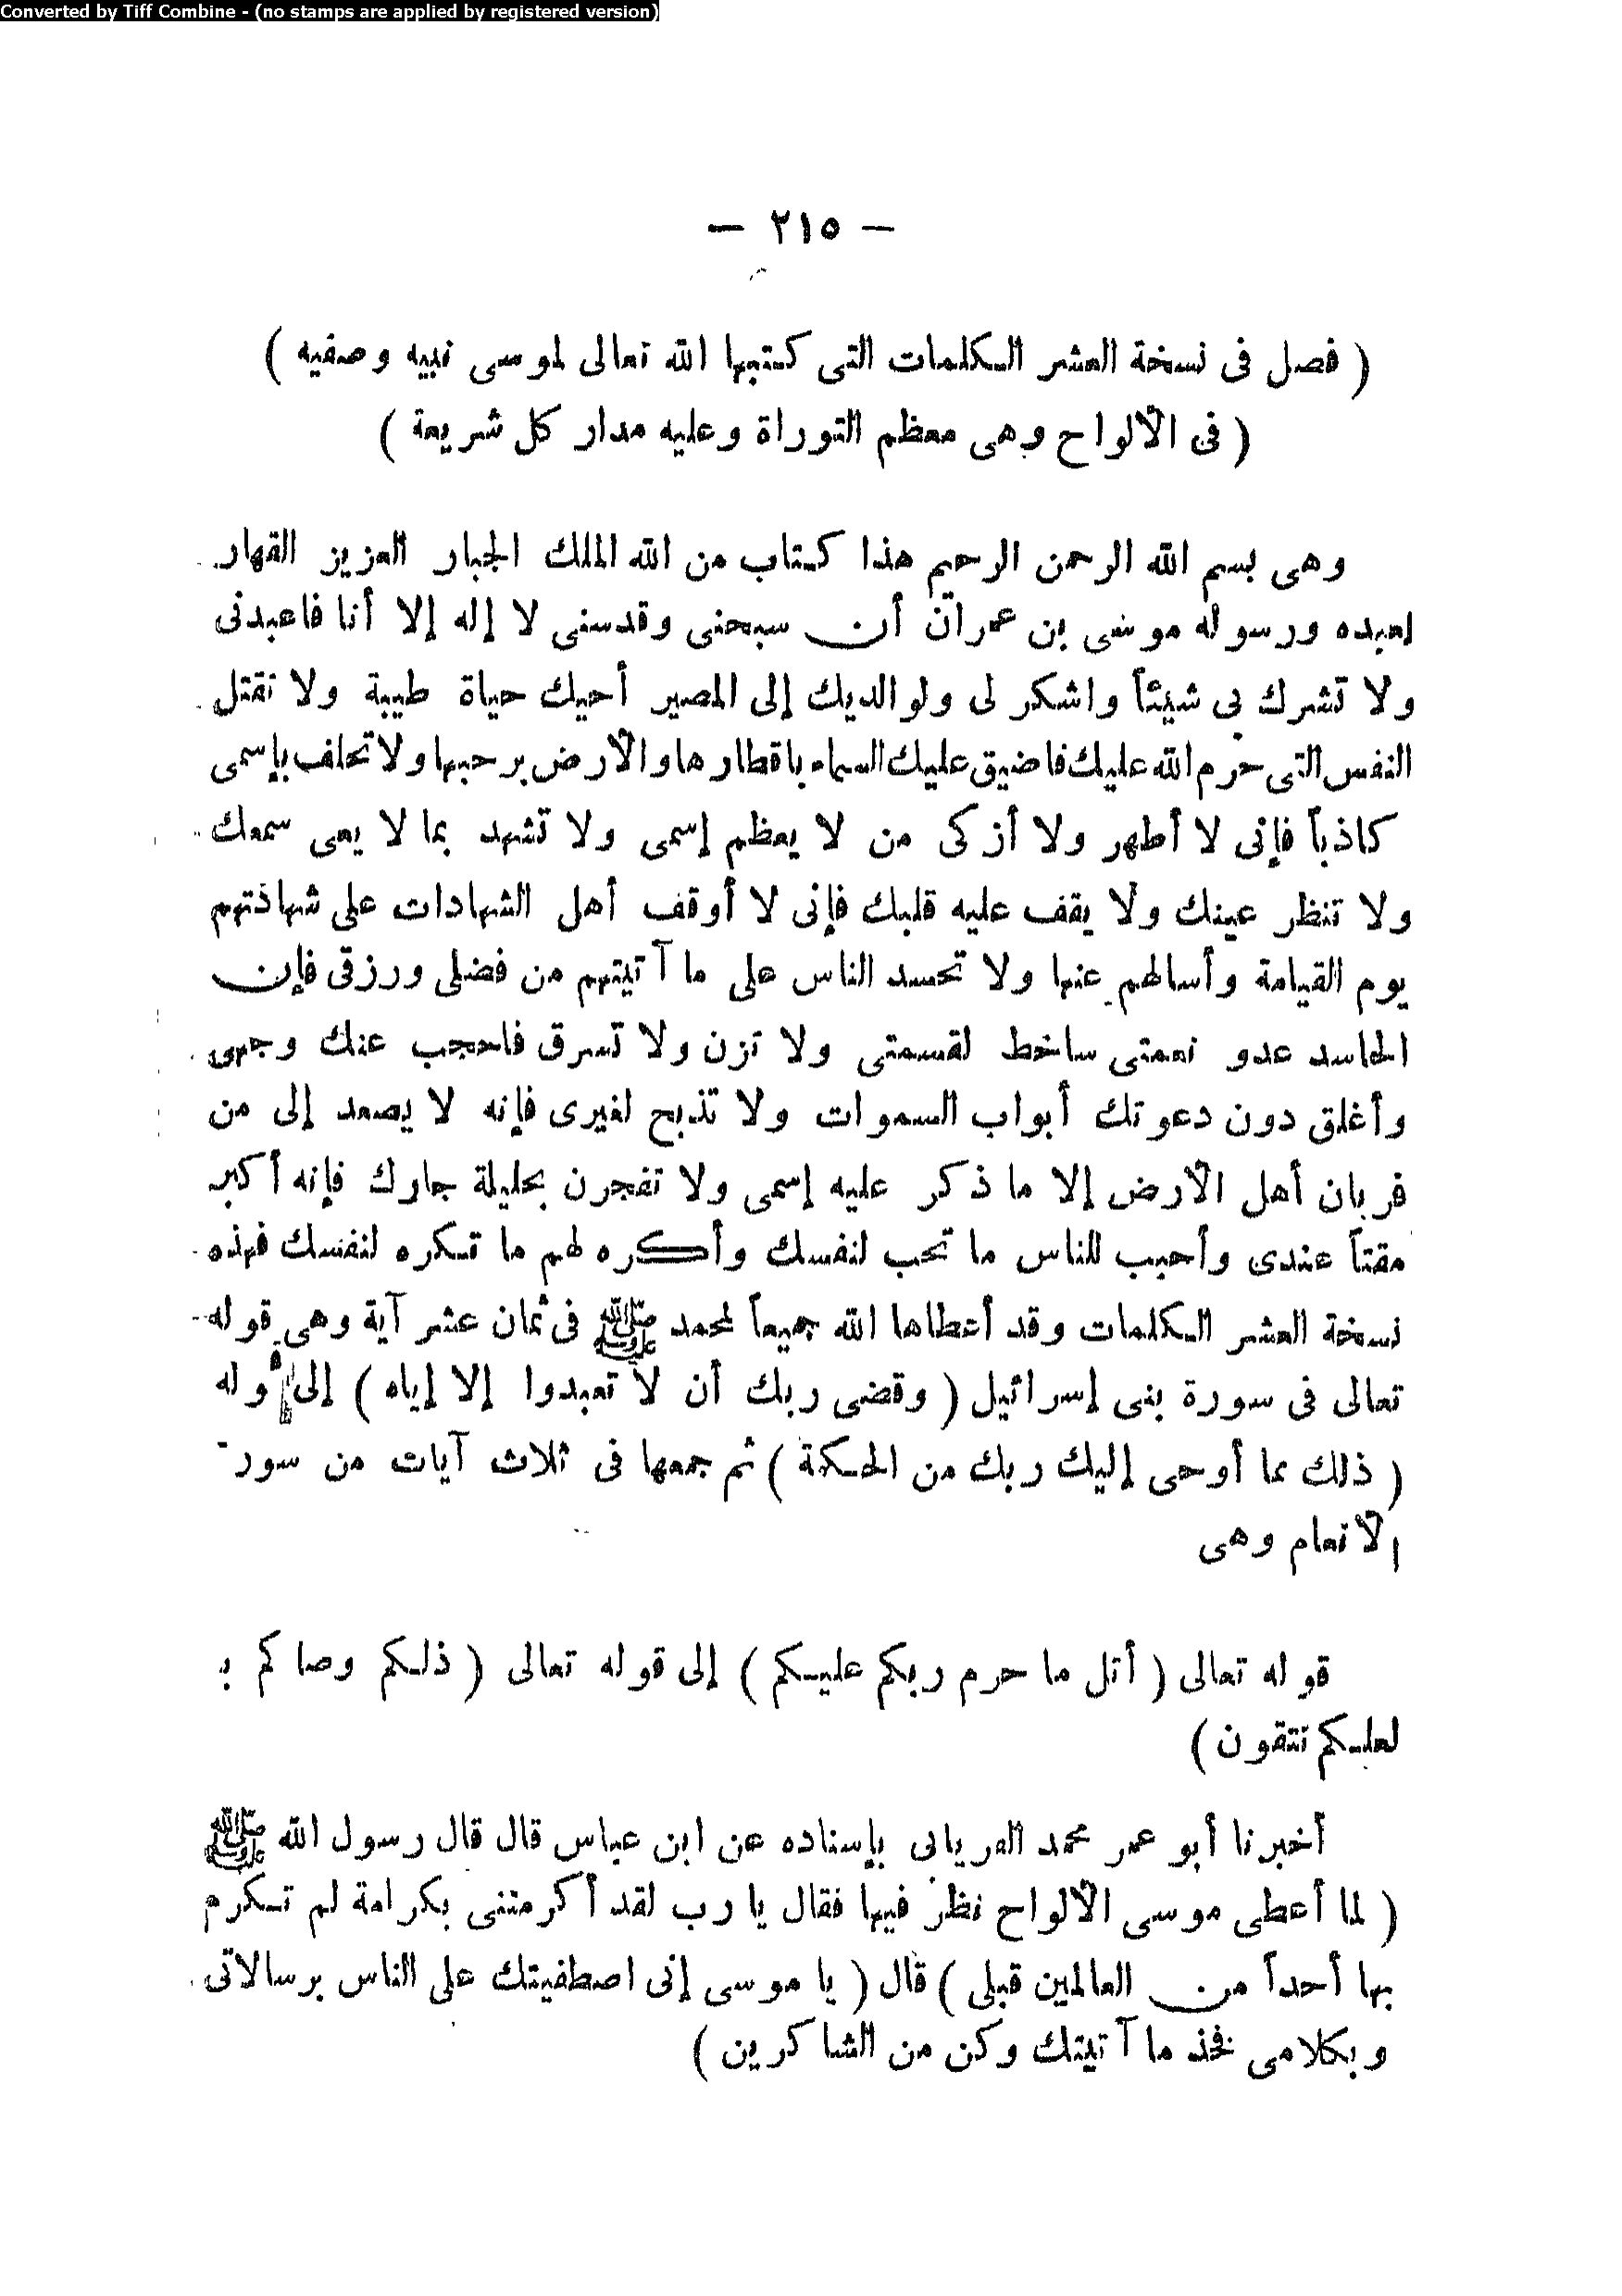 Converted by Tiff Combine - (no stamps are applied by registered version)
— ٢١٥ —
( فصل فى نسخة العشر الكلمات التى كتبها الله تعالى لموسى نبيه وصفيه )
( فى الألواح وهى معظم التوراة وعليه مدار كل شريعة )
وهى بسم الله الرحمن الرحيم هذا كتاب من الله الملك الجبار العزيز القهار
لعبده ورسوله موسى بن عمران أن سبحنى وقدسنى لا إله إلا أنا فاعبدنى
ولا تشرك بى شيئاً واشكر لى ولوالديك إلى المصير أحيك حياة طيبة ولا تقتل
النفس التى حرم الله عليك فاضيق عليك السماء باقطارها والأرض برحبها ولا تحلف بإسمى
كاذباً فإنى لا أطهر ولا أزكى من لا يعظم إسمى ولا تشهد بما لا يعى سمعك
ولا تنظر عينك ولا يقف عليه قلبك فإنى لا أوقف أهل الشهادات على شهاذتهم
يوم القيامة وأسالهم عنها ولا تحسد الناس على ما آتيتهم من فضلى ورزقى فإن
الحاسد عدو نعمتى ساخط لقسمتى ولا تزن ولا تسرق فاحجب عنك وجهى
وأغلق دون دعوتك أبواب السموات ولا تذبح لغيرى فإنه لا يصعد إلى من
قربان أهل الأرض إلا ما ذكر عليه إسمى ولا تفجرن بحليلة جارك فإنه أكبر
مقتاً عندى وأحبب للناس ما تحب لنفسك وأكره لهم ما تكره لنفسك فهذه
نسخة العشر الكلمات وقد أعطاها الله جميعاً لمحمد ﷺ فى ثمان عشر آية وهى قوله
تعالى فى سورة بنى إسرائيل ( وقضى ربك أن لا تعبدوا إلا إياه ) إلى وله
( ذلك مما أوحى إليك ربك من الحكمة ) ثم جمعها فى ثلاث آيات من سور
الانعام وهى
قوله تعالى ( أتل ما حرم ربكم عليكم ) إلى قوله تعالى ( ذلكم وصاكم ب
لعلكم تتقون )
أخبرنا أبو عمر محمد الفريانى بإسناده عن ابن عباس قال قال رسول الله ﷺ
( لما أعطى موسى الألواح نظر فيها فقال يا رب لقد أكرمتنى بكرامة لم تكرم
بها أحداً من العالمين قبلى ) قال ( يا موسى إنى اصطفيتك على الناس برسالاتى
وبكلامى فخذ ما آتيتك وكن من الشاكرين )